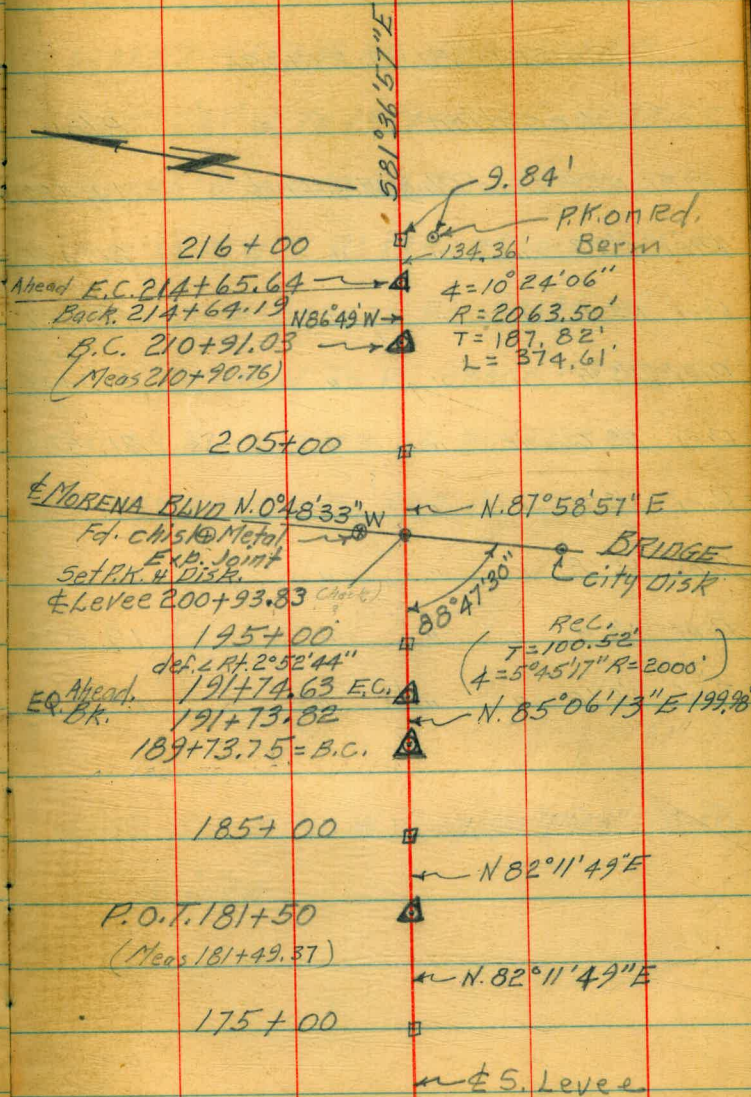 S81°36'57"E
9.84'
P.K. on Rd.
Berm
216+00
134.36'
Ahead E.C. 214+65.64
Back. 214+64.19
N86°49'W
B.C. 210+91.03
(Meas 210+90.76)
∆=10°24'06"
R=2063.50'
T=187.82'
L=374.61'
205+00
N.87°58'57"E
℄ MORENA BLVD N.0°48'33"W
Fd. chisl ⊕ Metal
Exp. Joint
Set P.K. & Disk.
℄ Levee 200+93.83
BRIDGE
City Disk
88°47'30"
195+00
def. ∠ Rt. 2°52'44"
Rec.
T=100.52'
∆=5°45'17" R=2000'
EQ. Ahead. 191+74.63 E.C.
Bk. 191+73.82
N. 85°06'13"E 199.98
189+73.75 = B.C.
185+00
N 82°11'49"E
P.O.T. 181+50
(Meas 181+49.37)
N. 82°11'49"E
175+00
℄ S. Levee